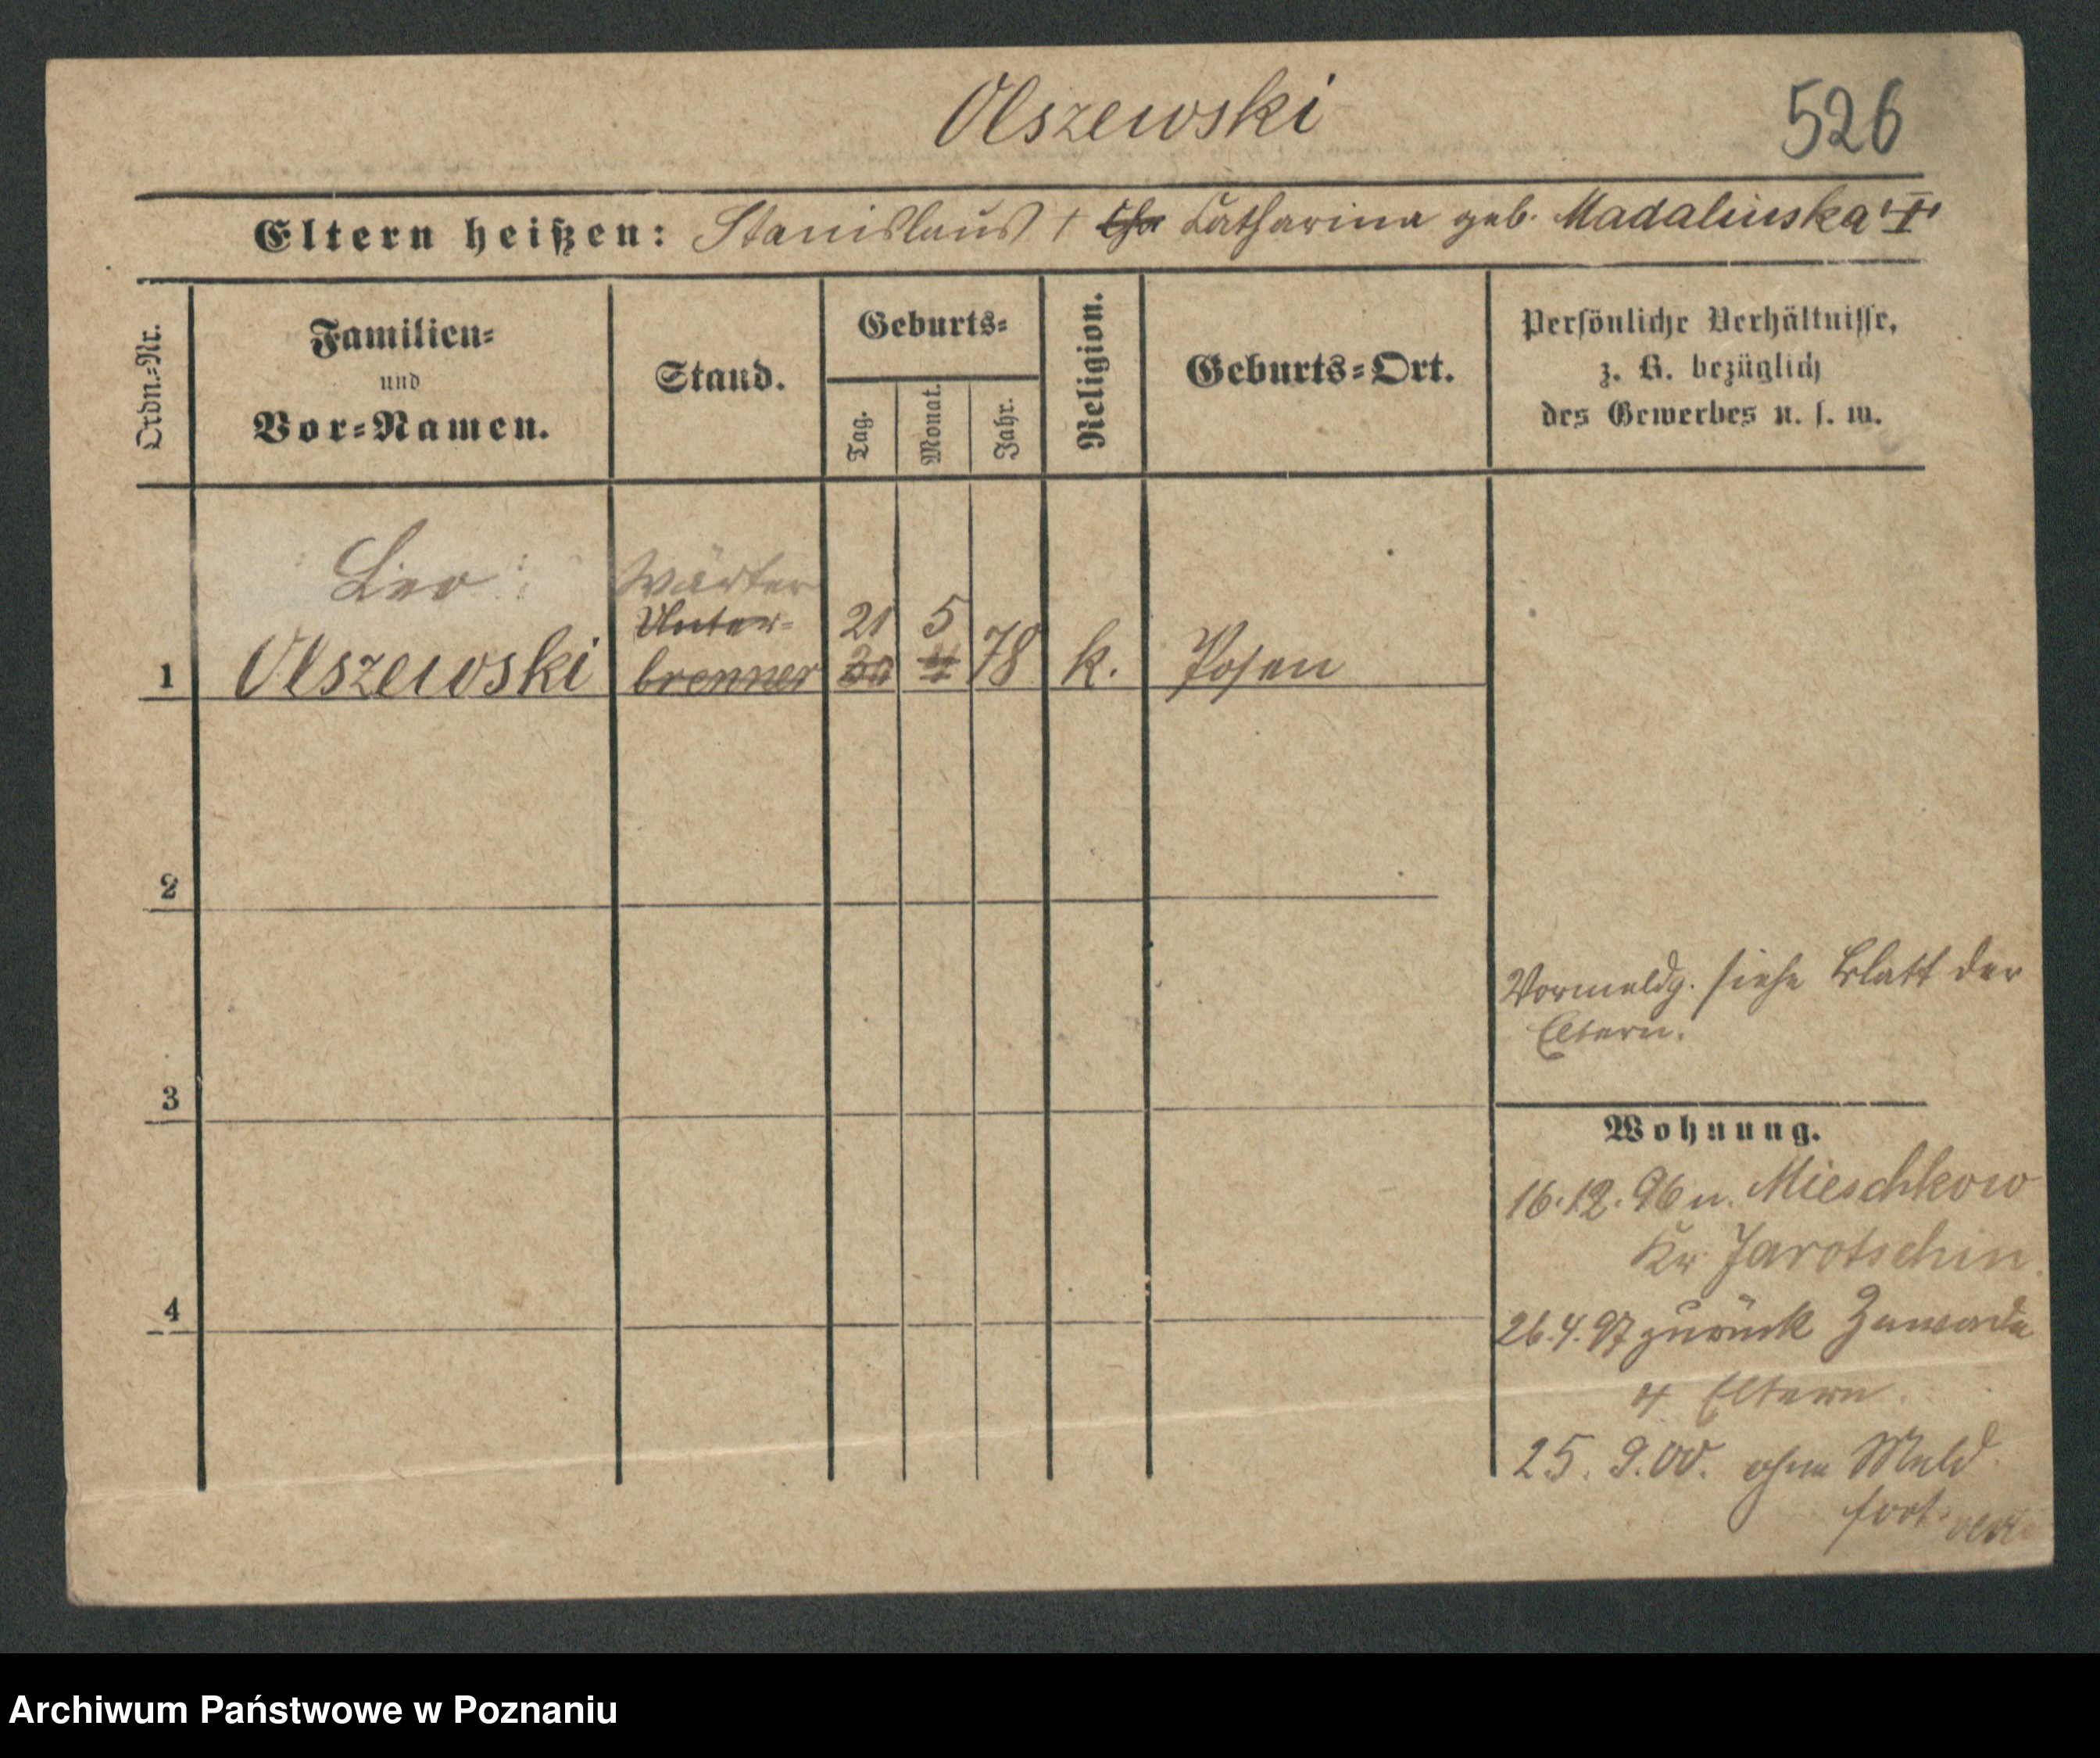 Olszewski
526
Eltern heißen: Stanislaus † Catharina geb. Madalinska
Ordn.-Nr.
Familien-
und
Vor-Namen.
Stand.
Geburts-
Tag.
Monat.
Jahr.
Religion.
Geburts-Ort.
Persönliche Verhältnisse,
z. B. bezüglich
des Gewerbes u. s. w.
Leo
Wärter
Unter-
21 5
1 Olszewski brenner 30 78 k. Posen
2
Vormeldg. siehe Blatt der
Eltern.
3
Wohnung.
16.12.96 n. Mieschkow
Kr Jarotschin
4
26.4.97 zurück Zawade
4 Eltern
25. 9. 00. ohne Meld.
fort.
Archiwum Państwowe w Poznaniu